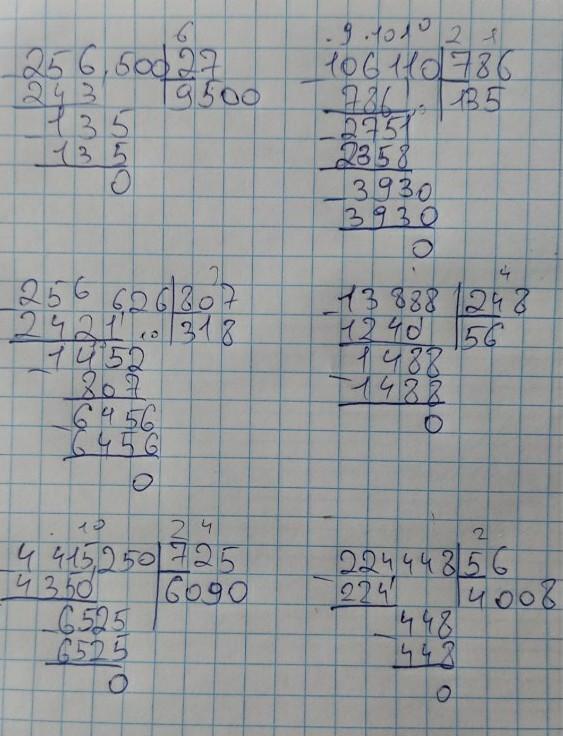 6
256.500 27
243 9500
135
135
0
9 10 1 0 2 1
106110 786
786 135
2751
2358
3930
3930
0
256 626 807
2421 318
1452
807
6456
6456
0
4
13888 248
1240 56
1488
1488
0
10 2 4
4415250 725
4350 6090
6525
6525
0
2
224448 56
224 4008
448
448
0